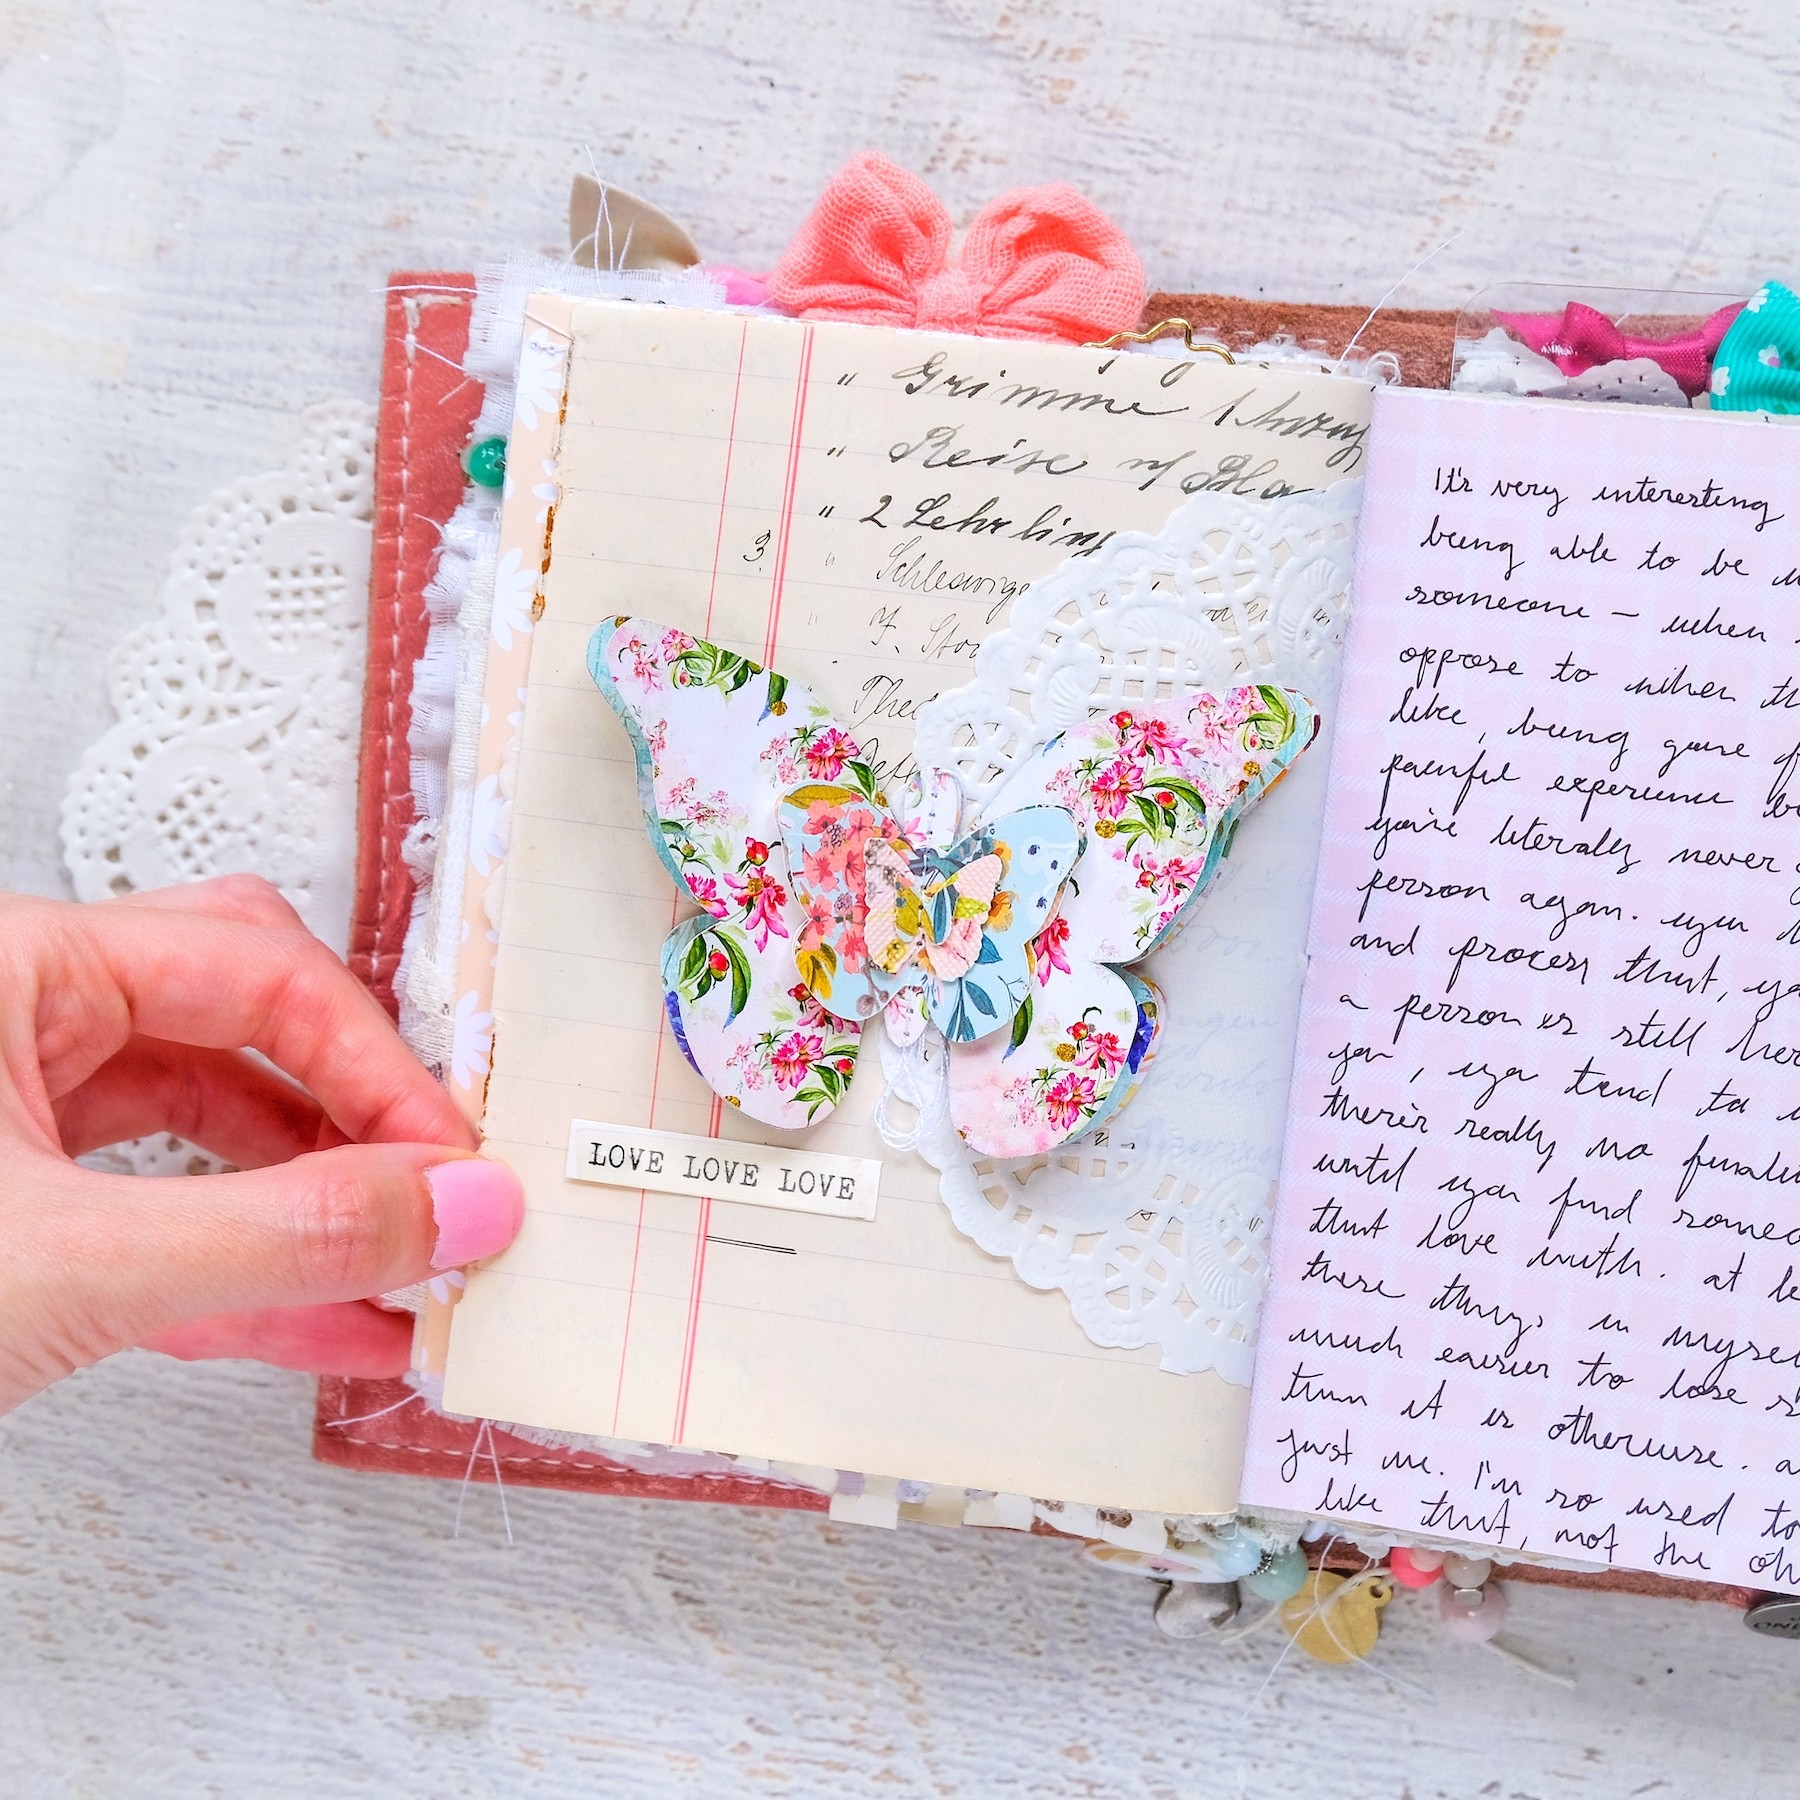 " Grimme 1 Anzug
" Reise n/
" 2 Lehrling
3. " Schleswige
" F. Stoc
Thed
LOVE LOVE LOVE
It's very interesting
being able to be
someone — when
oppose to when th
like, being gone f
painful experience be
you're literally never
person again. upon
and process that, yo
a person is still her
you, you tend to
there's really no finali
until you find someo
that love with. at le
these things in mysel
much easier to lose s
than it is otherwise. a
just me. I'm so used to
like that, not the oth